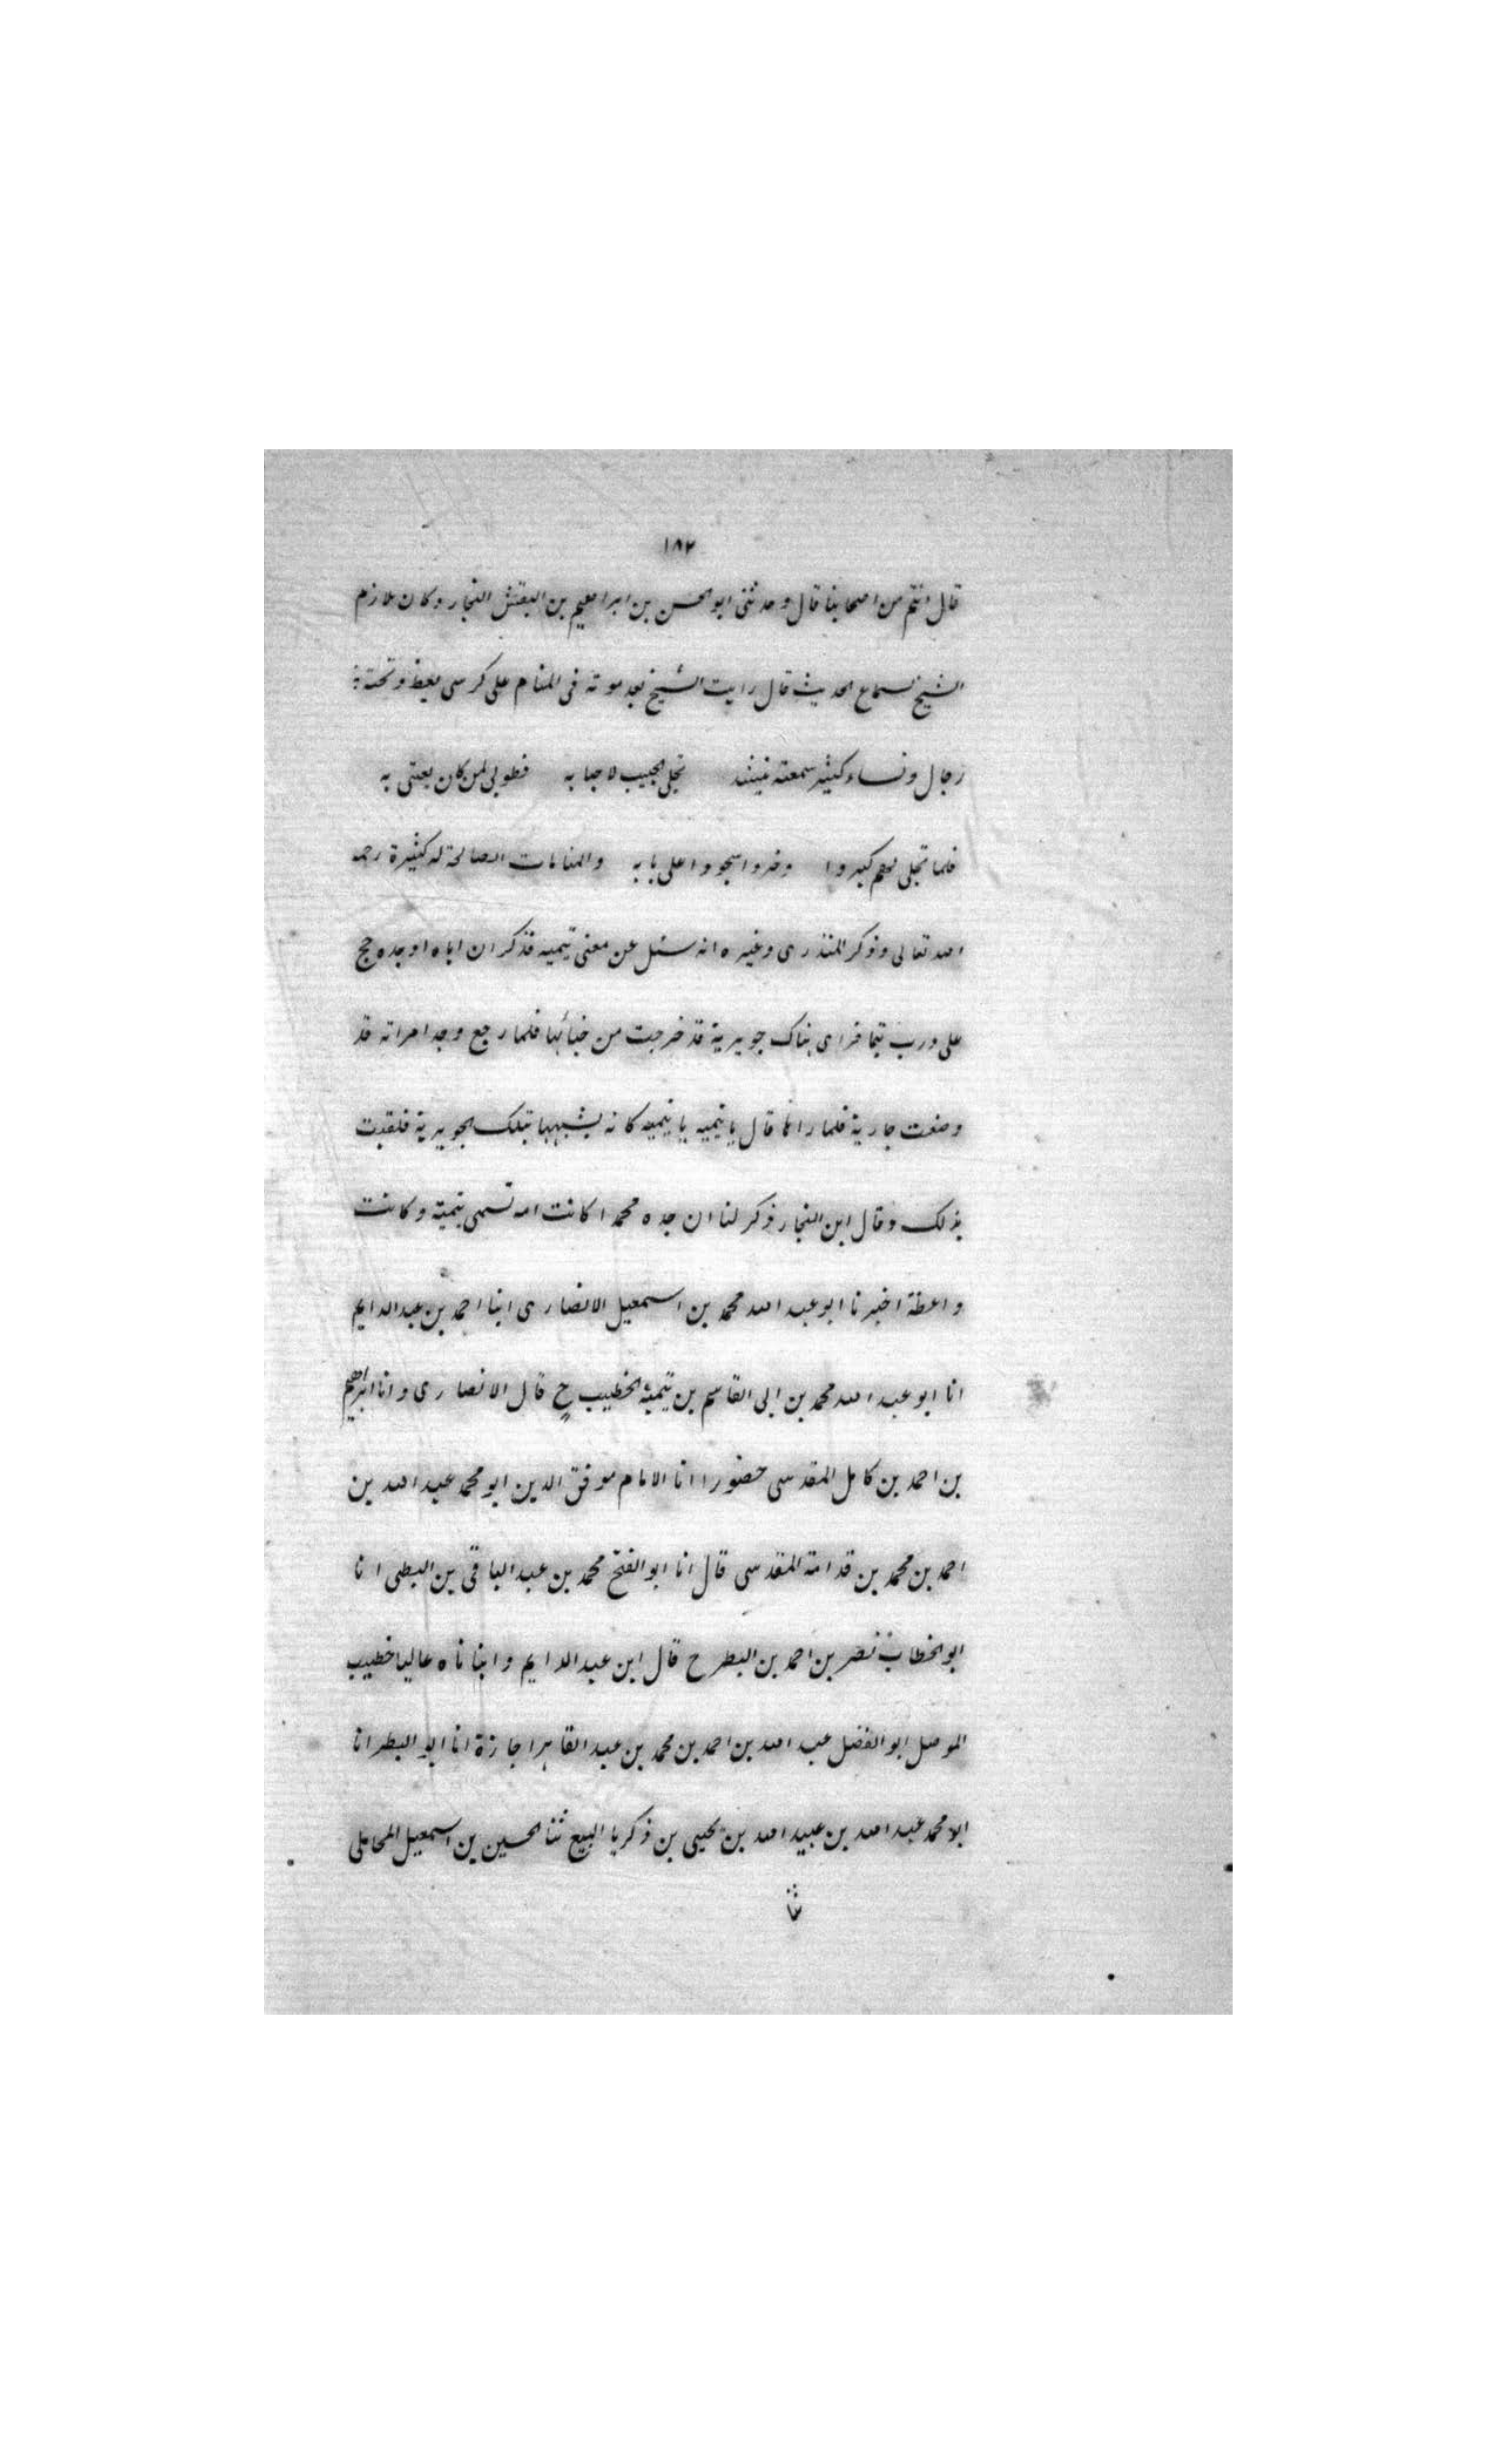 ١٨٢
قال انتم من اصحابنا قال وحدثنى ابو الحسن بن ابراهيم بن البقتش النجار وكان يلازم
الشيخ لسماع الحديث قال رايت الشيخ بعد موته فى المنام على كرسى يعظ وتحته
رجال ونساء كثير سمعته ينشد تجلى الحبيب لاحبابه فطوبى لمن كان يعنى به
فلما تجلى لهم كبروا وخروا سجودا على بابه والمنامات الصالحة له كثيرة رحمه
الله تعالى وذكر المنذرى وغيره انه سئل عن معنى تيميه فذكر ان اباه او جده حج
على درب تيما فراى هناك جويرية قد خرجت من خبائها فلما رجع وجد امراته قد
وضعت جارية فلما راها قال يا تيميه يا تيميه كانه يشبهها بتلك الجويرية فلقبت
بذلك وقال ابن النجار ذكر لنا ان جده محمدا كانت امه تسمى تيمية وكانت
واعظة اخبرنا ابو عبد الله محمد بن اسمعيل الانصارى ابنا احمد بن عبد الدايم
انا ابو عبد الله محمد بن ابى القاسم بن تيمية الخطيب ح قال الانصارى وانا ابراهيم
بن احمد بن كامل المقدسى حضورا انا الامام موفق الدين ابو محمد عبد الله بن
احمد بن محمد بن قدامة المقدسى قال انا ابو الفتح محمد بن عبد الباقى بن البطى انا
ابو الخطاب نصر بن احمد بن البطر ح قال ابن عبد الدايم وابناناه عاليا خطيب
الموصل ابو الفضل عبد الله بن احمد بن محمد بن عبد القاهر اجازة انا ابن البطر انا
ابو محمد عبد الله بن عبيد الله بن يحيى بن زكريا البيع ثنا الحسين بن اسمعيل المحاملى
ثنا